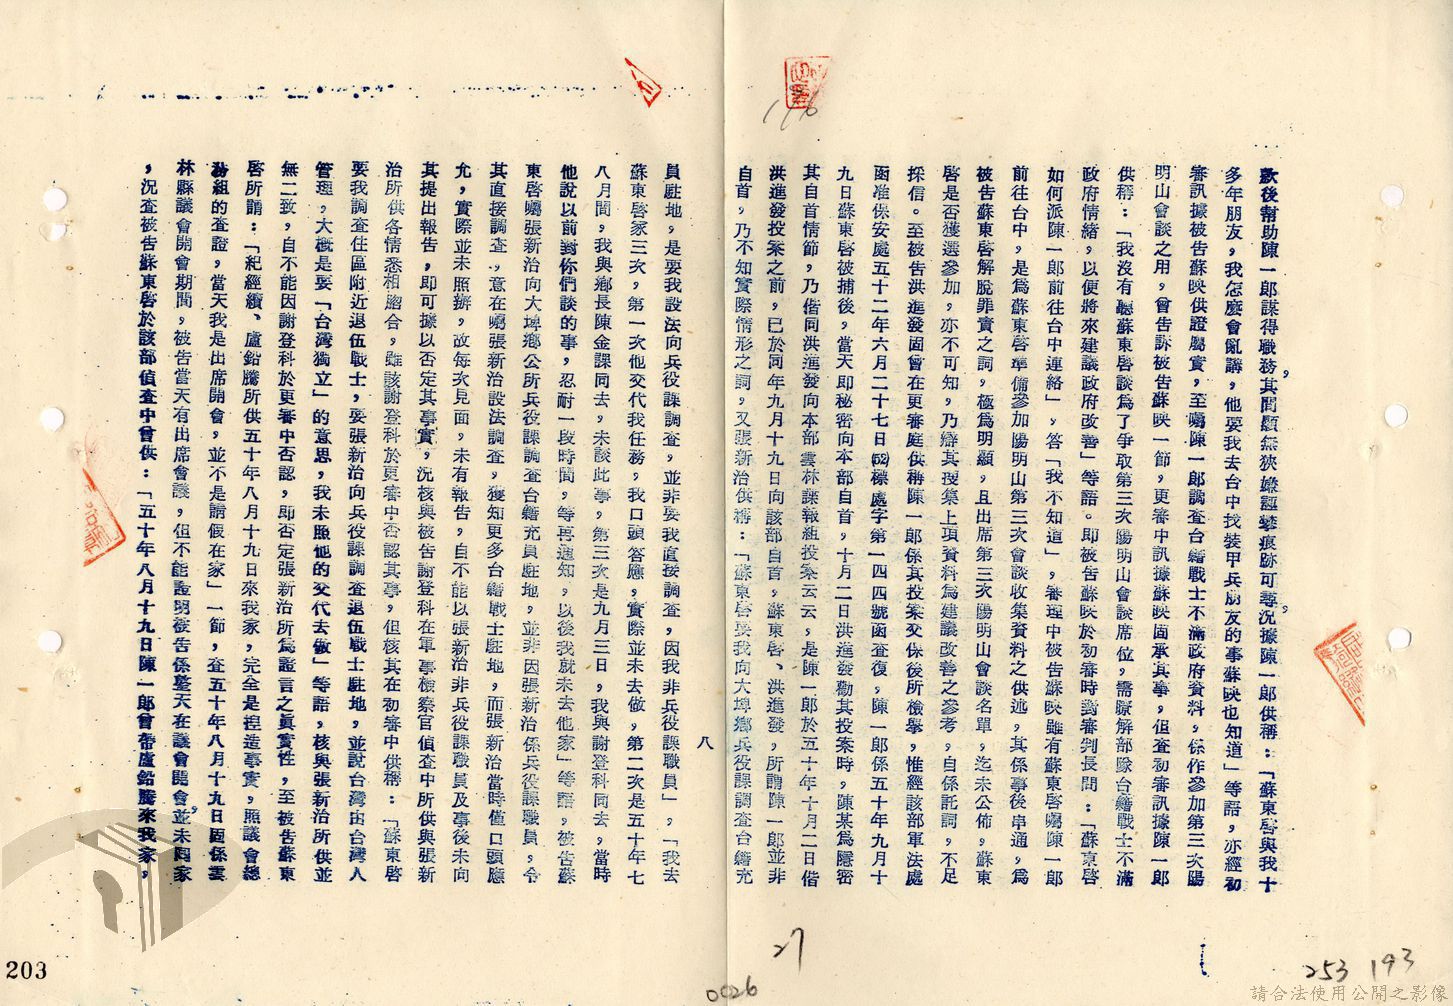 款後幫助陳一郎謀得職務其間顯無狹嫌誣攀痕跡可尋，況據陳一郎供稱：「蘇東啓與我十
多年朋友，我怎麼會亂講，他要我去台中找裝甲兵朋友的事蘇映也知道」等語，亦經初
審訊據被告蘇映供證屬實，至囑陳一郎調查台籍戰士不滿政府資料，係作參加第三次陽
明山會談之用，曾告訴被告蘇映一節，更審中訊據蘇映固承其事，但查初審訊據陳一郎
供稱：「我沒有聽蘇東啓談為了爭取第三次陽明山會談席位，需瞭解部隊台籍戰士不滿
政府情緒，以便將來建議政府改善」等語。即被告蘇映於初審時對審判長問：「蘇東啓
如何派陳一郎前往台中連絡」，答「我不知道」，審理中被告蘇映雖有蘇東啓囑陳一郎
前往台中，是為蘇東啓準備參加陽明山第三次會談收集資料之供述，其係事後串通，為
被告蘇東啓解脫罪責之詞，極為明顯，且出席第三次陽明山會談名單，迄未公佈，蘇東
啓是否獲選參加，亦不可知，乃辯其搜集上項資料為建議改善之參考，自係託詞，不足
採信。至被告洪進發固曾在更審庭供稱陳一郎係其投案交保後所檢舉，惟經該部軍法處
函准保安處五十二年六月二十七日標處字第一四四號函查復，陳一郎係五十年九月十
九日蘇東啓被捕後，當天即秘密向本部自首，十月二日洪進發勸其投案時，陳某為隱密
其自首情節，乃偕同洪進發向本部雲林諜報組投案云云，是陳一郎於五十年十月二日偕
洪進發投案之前，已於同年九月十九日向該部自首，蘇東啓、洪進發，所謂陳一郎並非
自首，乃不知實際情形之詞，又張新治供稱：「蘇東啓要我向大埤鄉兵役課調查台籍充
八
員駐地，是要我設法向兵役課調查，並非要我直接調查，因我非兵役課職員」，「我去
蘇東啓家三次，第一次他交代我任務，我口頭答應，實際並未去做，第二次是五十年七
八月間，我與鄉長陳金課同去，未談此事，第三次是九月三日，我與謝登科同去，當時
他說以前對你們談的事，忍耐一段時間，等再通知，以後我就未去他家」等語，被告蘇
東啓囑張新治向大埤鄉公所兵役課調查台籍充員駐地，並非因張新治係兵役課職員，令
其直接調查，意在囑張新治設法調查，獲知更多台籍戰士駐地，而張新治當時僅口頭應
允，實際並未照辦，故每次見面，未有報告，自不能以張新治非兵役課職員及事後未向
其提出報告，即可據以否定其事實，況核與被告謝登科在軍事檢察官偵查中所供與張新
治所供各情悉相脗合，雖該謝登科於更審中否認其事，但核其在初審中供稱：「蘇東啓
要我調查住區附近退伍戰士，要張新治向兵役課調查退伍戰士駐地，並說台灣由台灣人
管理，大概是要「台灣獨立」的意思，我未照他的交代去做」等語，核與張新治所供並
無二致，自不能因謝登科於更審中否認，即否定張新治所為證言之眞實性，至被告蘇東
啓所謂：「紀經續、盧鉛騰所供五十年八月十九日來我家，完全是揑造事實，照議會總
務組的查證，當天我是出席開會，並不是請假在家」一節，查五十年八月十九日固係雲
林縣議會開會期間，被告當天有出席會議，但不能證明被告係整天在議會開會，並未囘家
，況查被告蘇東啓於該部偵查中曾供：「五十年八月十九日陳一郎曾帶盧鉛騰來我家，
203
0026
27
253 193
請合法使用公開之影像